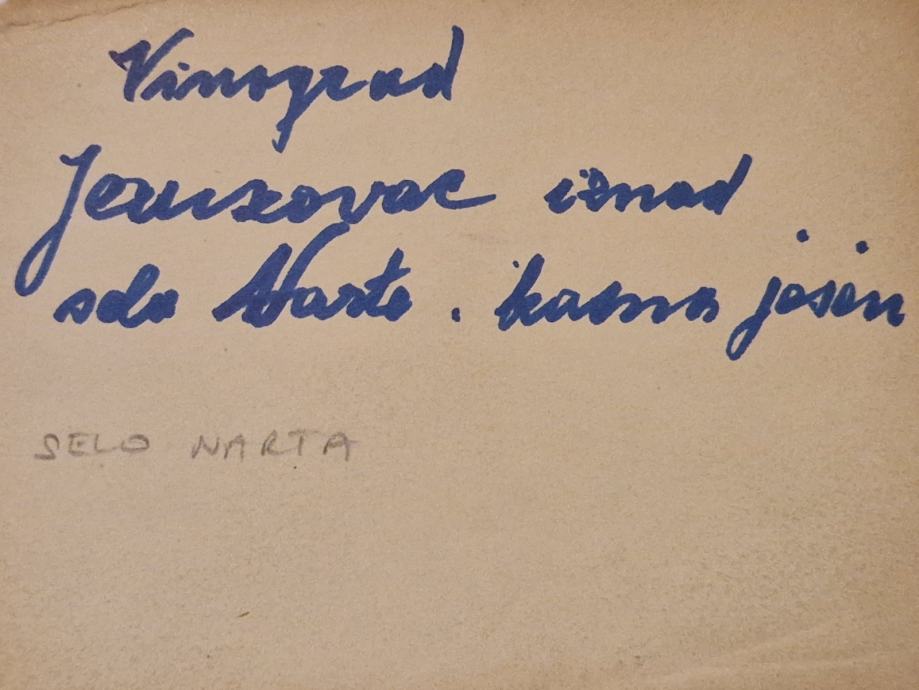 Vinograd
Jeruzovac iznad
sela Narte . kasna jesen
SELO NARTA